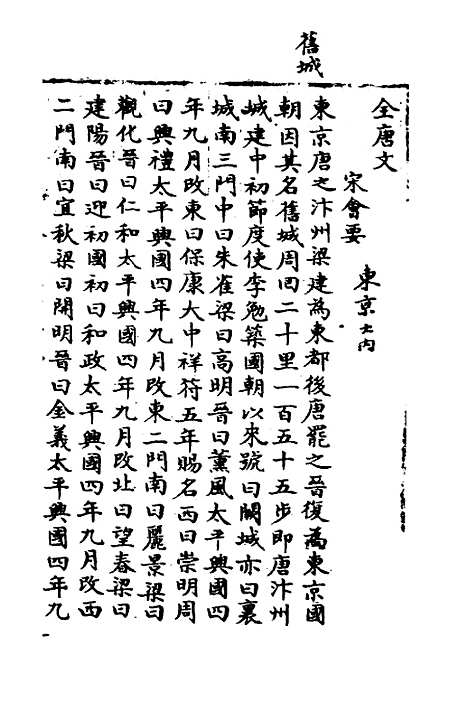 舊城
全唐文
宋會要
東京大內
東京唐之汴州梁建為東都後唐罷之晉復為東京國
朝因其名舊城周回二十里一百五十五步即唐汴州
城建中初節度使李勉築國朝以來號曰闕城亦曰裏
城南三門中曰朱雀梁曰高明晉曰薰風太平興國四
年九月改東曰保康大中祥符五年賜名西曰崇明周
曰興禮太平興國四年九月改東二門南曰麗景梁曰
觀化晉曰仁和太平興國四年九月改北曰望春梁曰
建陽晉曰迎初國初曰和政太平興國四年九月改西
二門南曰宜秋梁曰開明晉曰金義太平興國四年九